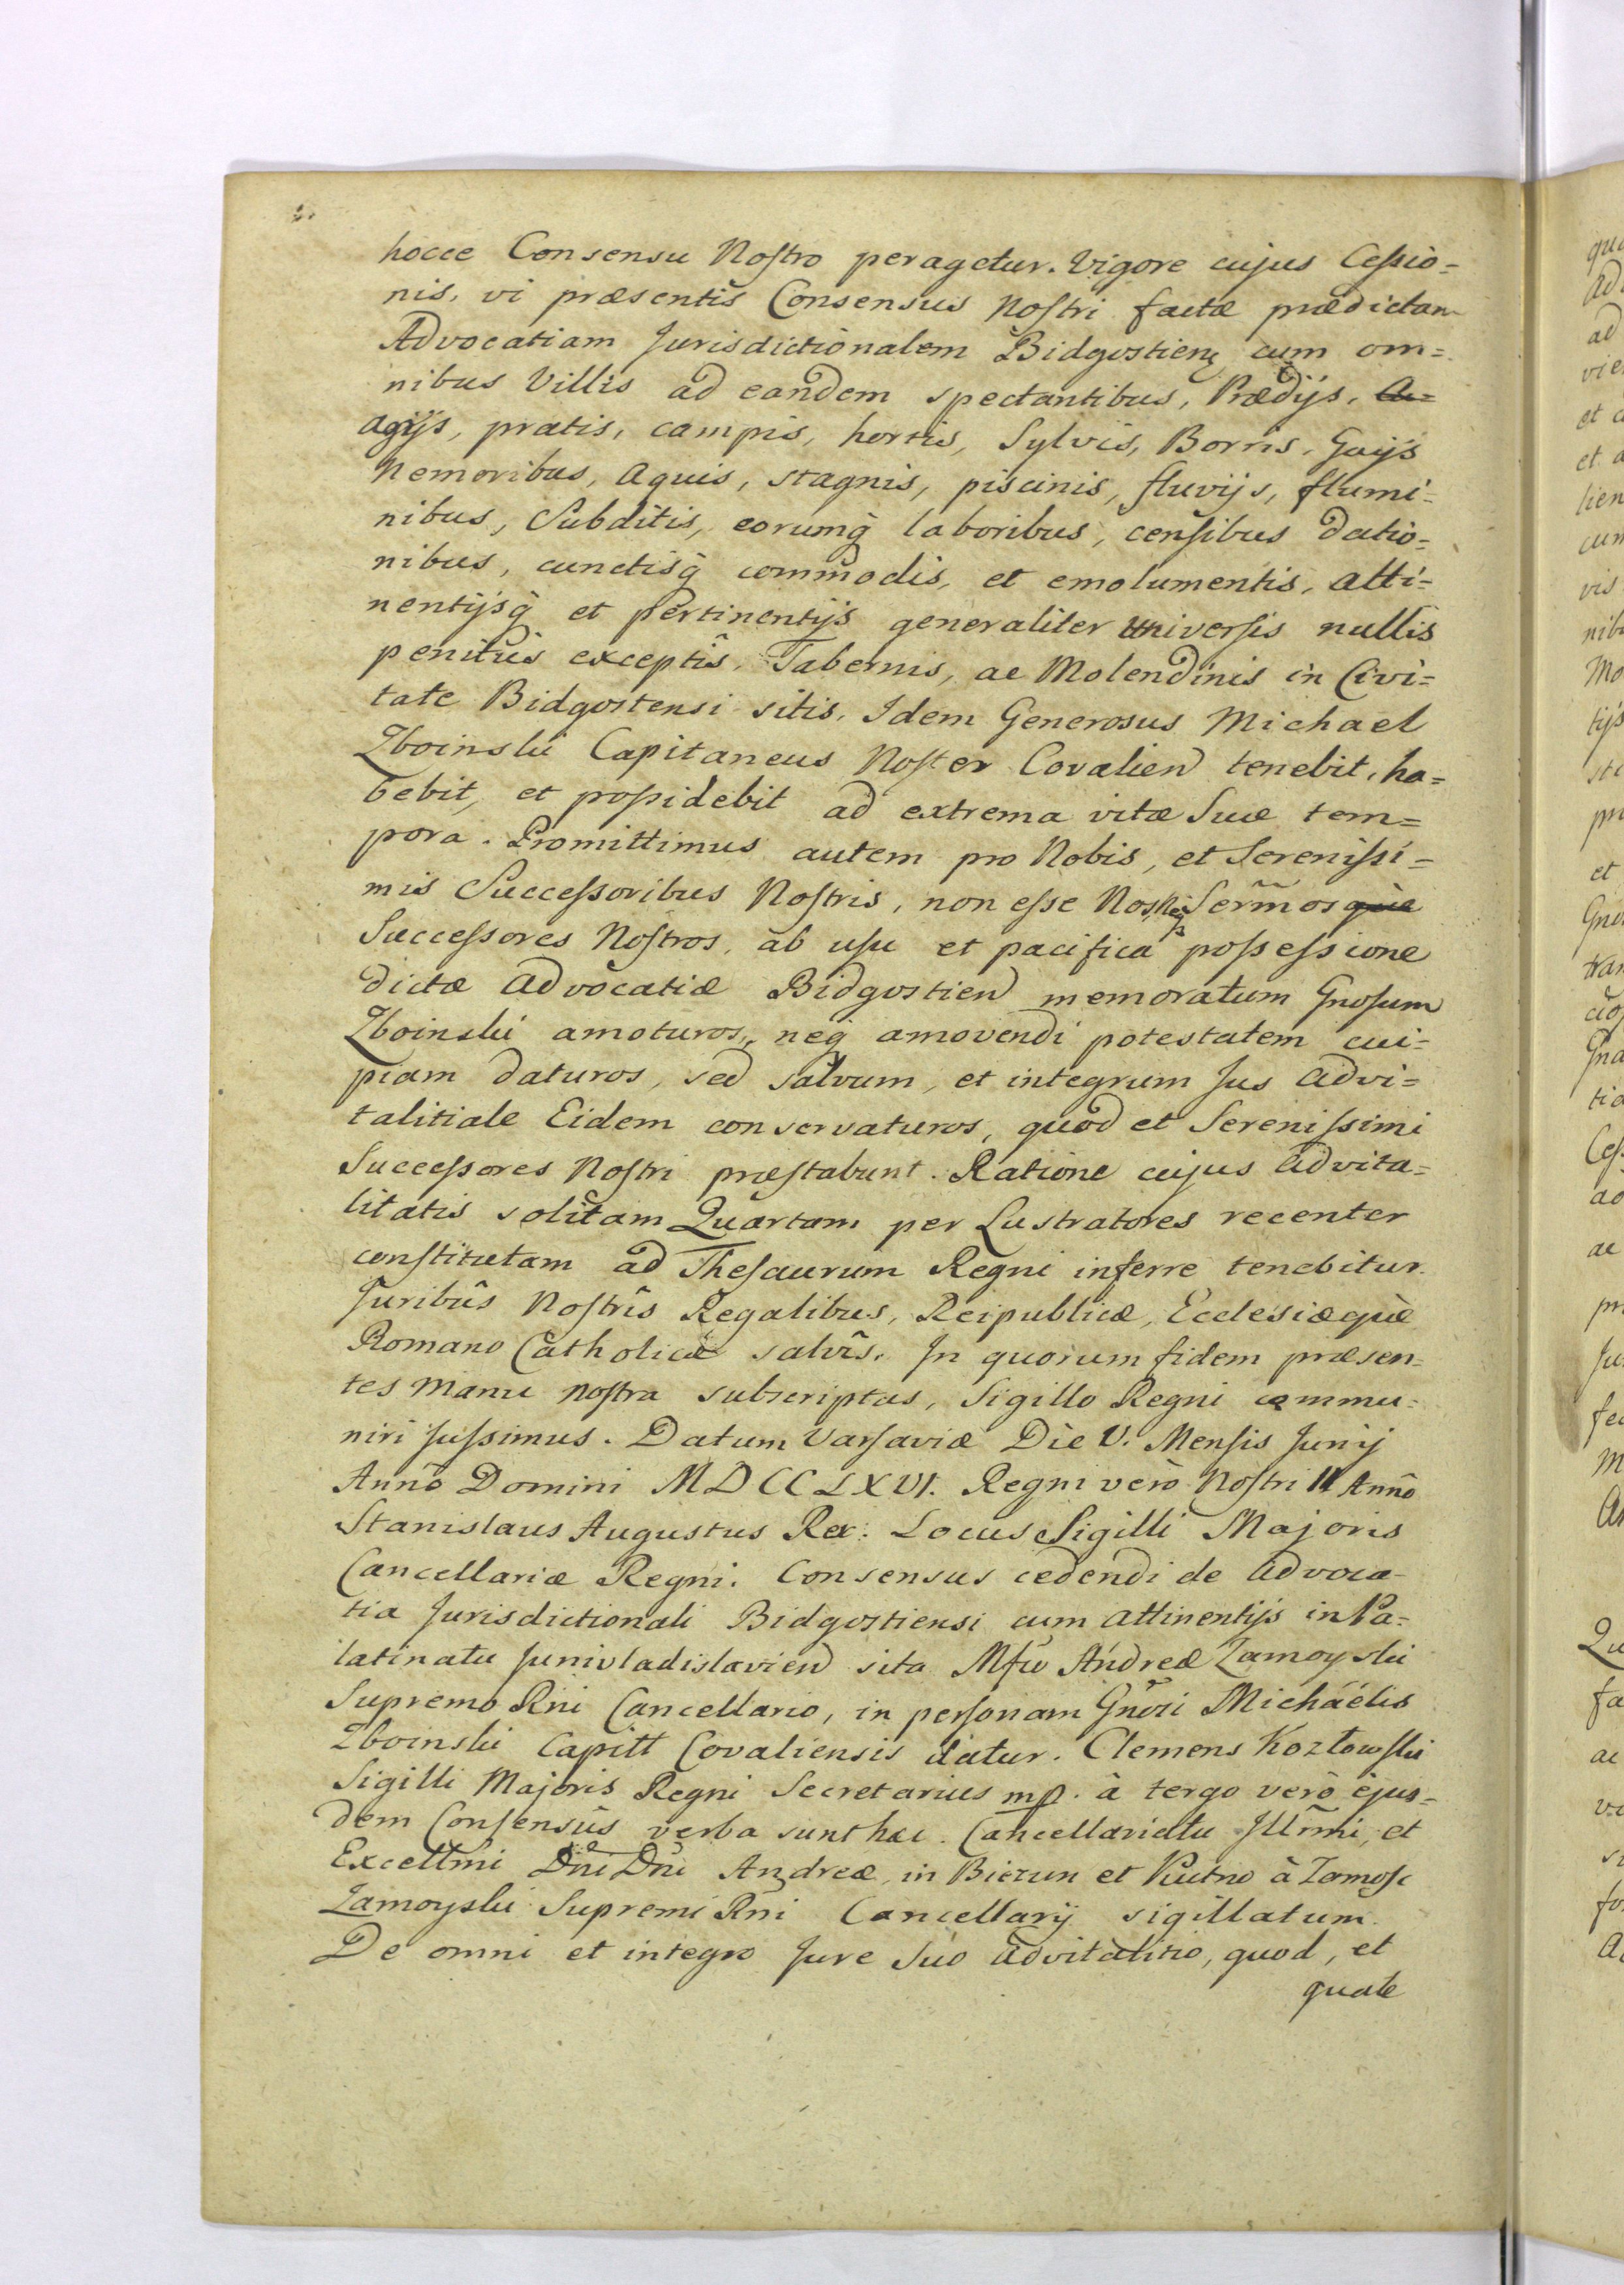 2.
hocce Consensu Nostro peragetur. Vigore cujus Cessio=
nis, vi præsentis Consensus Nostri factæ prædictam
Advocatiam Jurisdictionalem Bidgostien cum om=
nibus Villis ad eandem spectantibus, Prædijs,
agris, pratis, campis, hortis, Sylvis, Borris, Gaijs
Nemoribus, Aquis, stagnis, piscinis, fluvijs, flumi=
nibus, Subditis, eorumq̀ laboribus, censibus datio=
nibus, cunctisq̀ commodis, et emolumentis, atti=
nentijsq̀ et pertinentijs generaliter universis nullis
penitùs exceptîs, Tabernis, ac Molendinis in Civi=
tate Bidgostensi sitis, Idem Generosus Michael
Zboinski Capitaneus Noster Covalien tenebit, ha=
bebit, et possidebit ad extrema vitæ Suæ tem=
pora. Promittimus autem pro Nobis, et Serenissi=
mis Successoribus Nostris, non esse Nos, Neq̀ Serm̃os que
Successores Nostros, ab usu et pacifica possessione
dictæ Advocatiæ Bidgostien memoratum Gnosum
Zboinski amoturos, neq̀ amovendi potestatem cui=
piam daturos, sed salvum, et integrum Jus Advi=
talitiale Eidem conservaturos, quod et Serenissimi
Successores Nostri præstabunt. Ratione cujus Advita=
litatis solitam Quartam per Lustratores recenter
constitutam ad Thesaurum Regni inferre tenebitur.
Juribûs Nostrîs Regalibus, Reipublicæ, Ecclesiæquè
Romano Catholicæ salvîs. In quorum fidem præsen=
tes Manu nostra subscriptas, Sigillo Regni commu=
niri jussimus. Datum Varsaviæ Die V. Mensis Junij
Annô Domini MDCCLXVI. Regni verò Nostri II Annô
Stanislaus Augustus Rex. Locus Sigilli Majoris
Cancellariæ Regni. Consensus cedendi de Advoca=
tia Jurisdictionali Bidgostiensi cum attinentijs in Pa=
latinatu Junivladislavien sita Mfco Andreæ Zamoyski
Supremo Rni Cancellario, in personam Gñosi Michaëlis
Zboinski Capitt Covaliensis datur. Clemens Kozłowski
Sigilli Majoris Regni Secretarius mp. à tergo verò ejus=
dem Consensûs verba sunt hæc. Cancellariatu Illm̃i, et
Excellm̃i Dñi Dñi Andreæ, in Biezun et Kutno à Zamość
Zamoyski Supremi Rñi Cancellarij sigillatum.
De omni et integro Jure Suo advitalitio, quod, et
quale